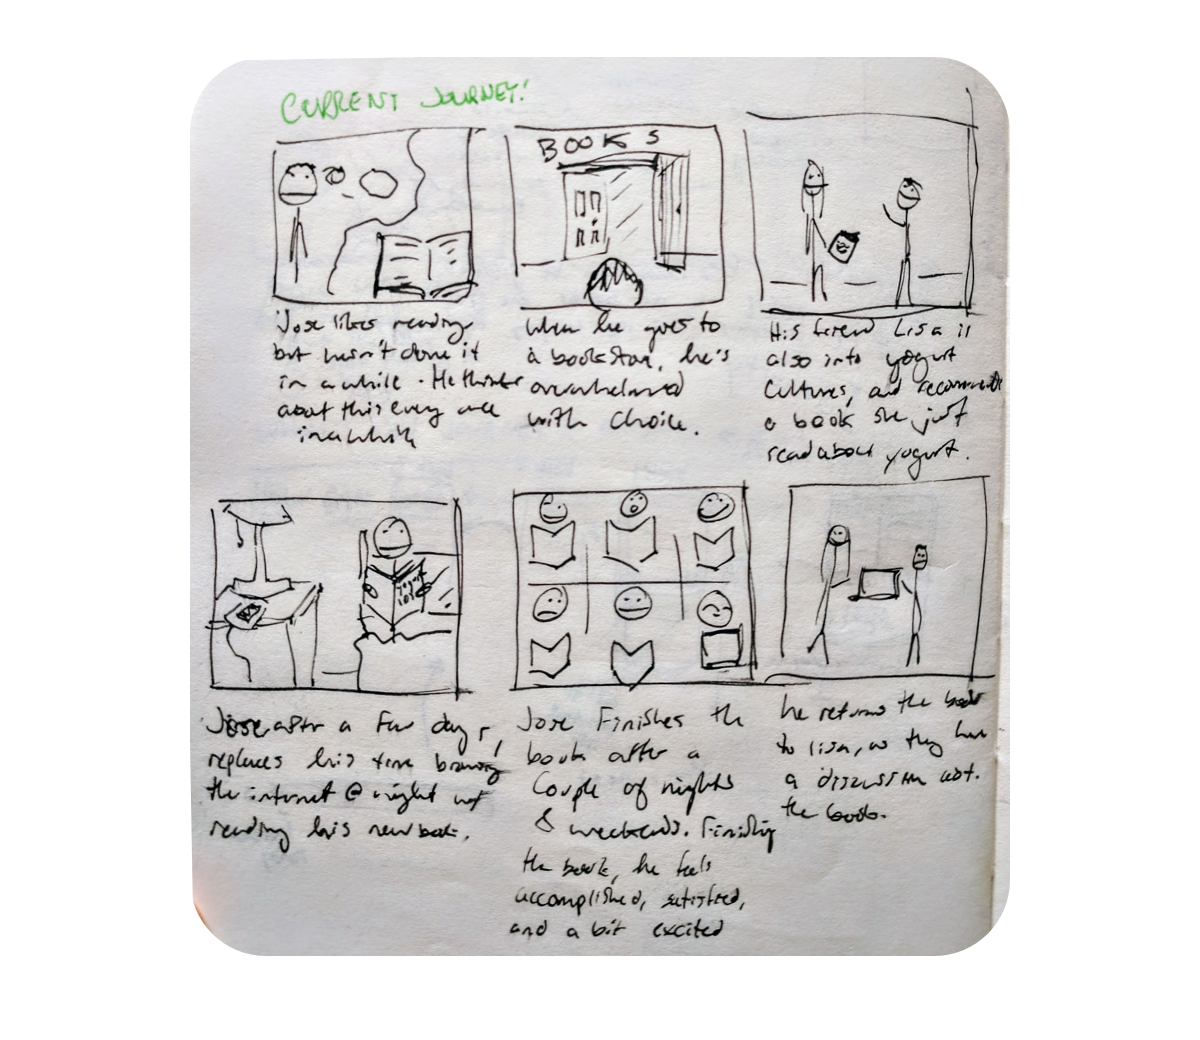 CURRENT JOURNEY!
BOOKS
Jose likes reading
but hasn't done it
in a while. He thinks
about this every once
in a while
When he goes to
a bookstore, he's
overwhelmed
with choice.
His friend Lisa is
also into yogurt
cultures, and recommends
a book she just
read about yogurt.
yogurt
101
Jose after a few days,
replaces his time browsing
the internet @ night w/
reading his new book.
Jose Finishes the
book after a
couple of nights
& weekends. Finishing
the book, he feels
accomplished, satisfied,
and a bit excited
he returns the book
to lisa, as they have
a discussion abt.
the book.